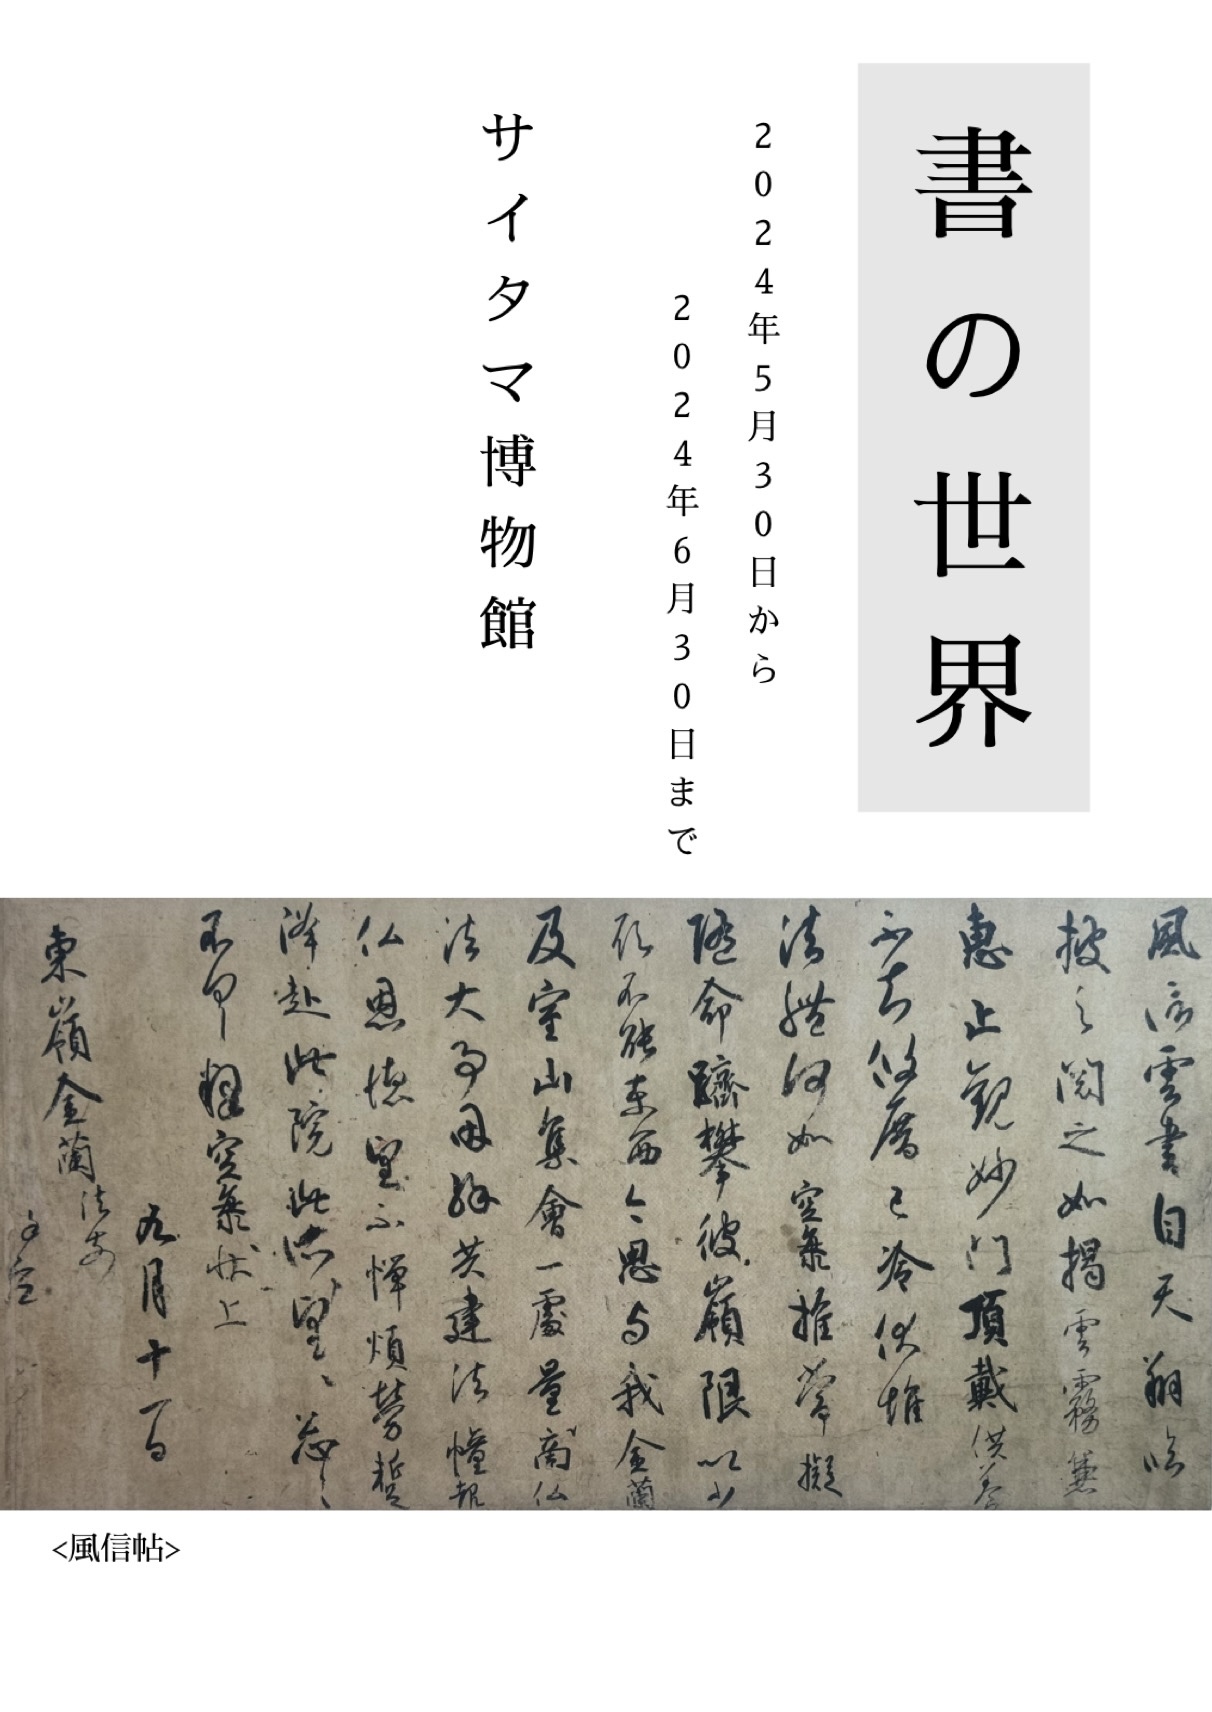 書の世界
2024年5月30日から
2024年6月30日まで
サイタマ博物館
風信雲書自天翔臨
披之閲之如掲雲霧兼
恵止観妙門頂戴供養
不知攸厝已冷伏惟
法體何如空海推常擬
随命躋攀彼嶺限以少
願不能東西今思与我金蘭
及室山集會一處量商仏
法大事因縁共建法幢報
仏恩徳望不憚煩労蹔
降赴此院此所望々忩々
不具釋空海状上
九月十一日
東嶺金蘭法前
<風信帖>